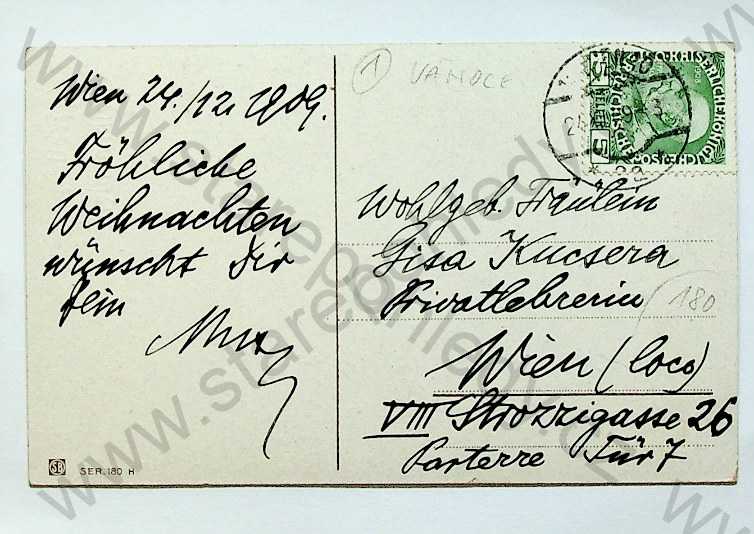 Wien 24./12. 1909.
Fröhliche
Weihnachten
wünscht Dir
Dein
Max
SB SER. 180 H
1 VÁNOCE
5 HELLER 5
Wohlgeb. Fräulein
Gisa Kucsera
Privatlehrerin
180
Wien (loco)
VIII Strozzigasse 26
Parterre Tür 7
www.starepohledy.cz